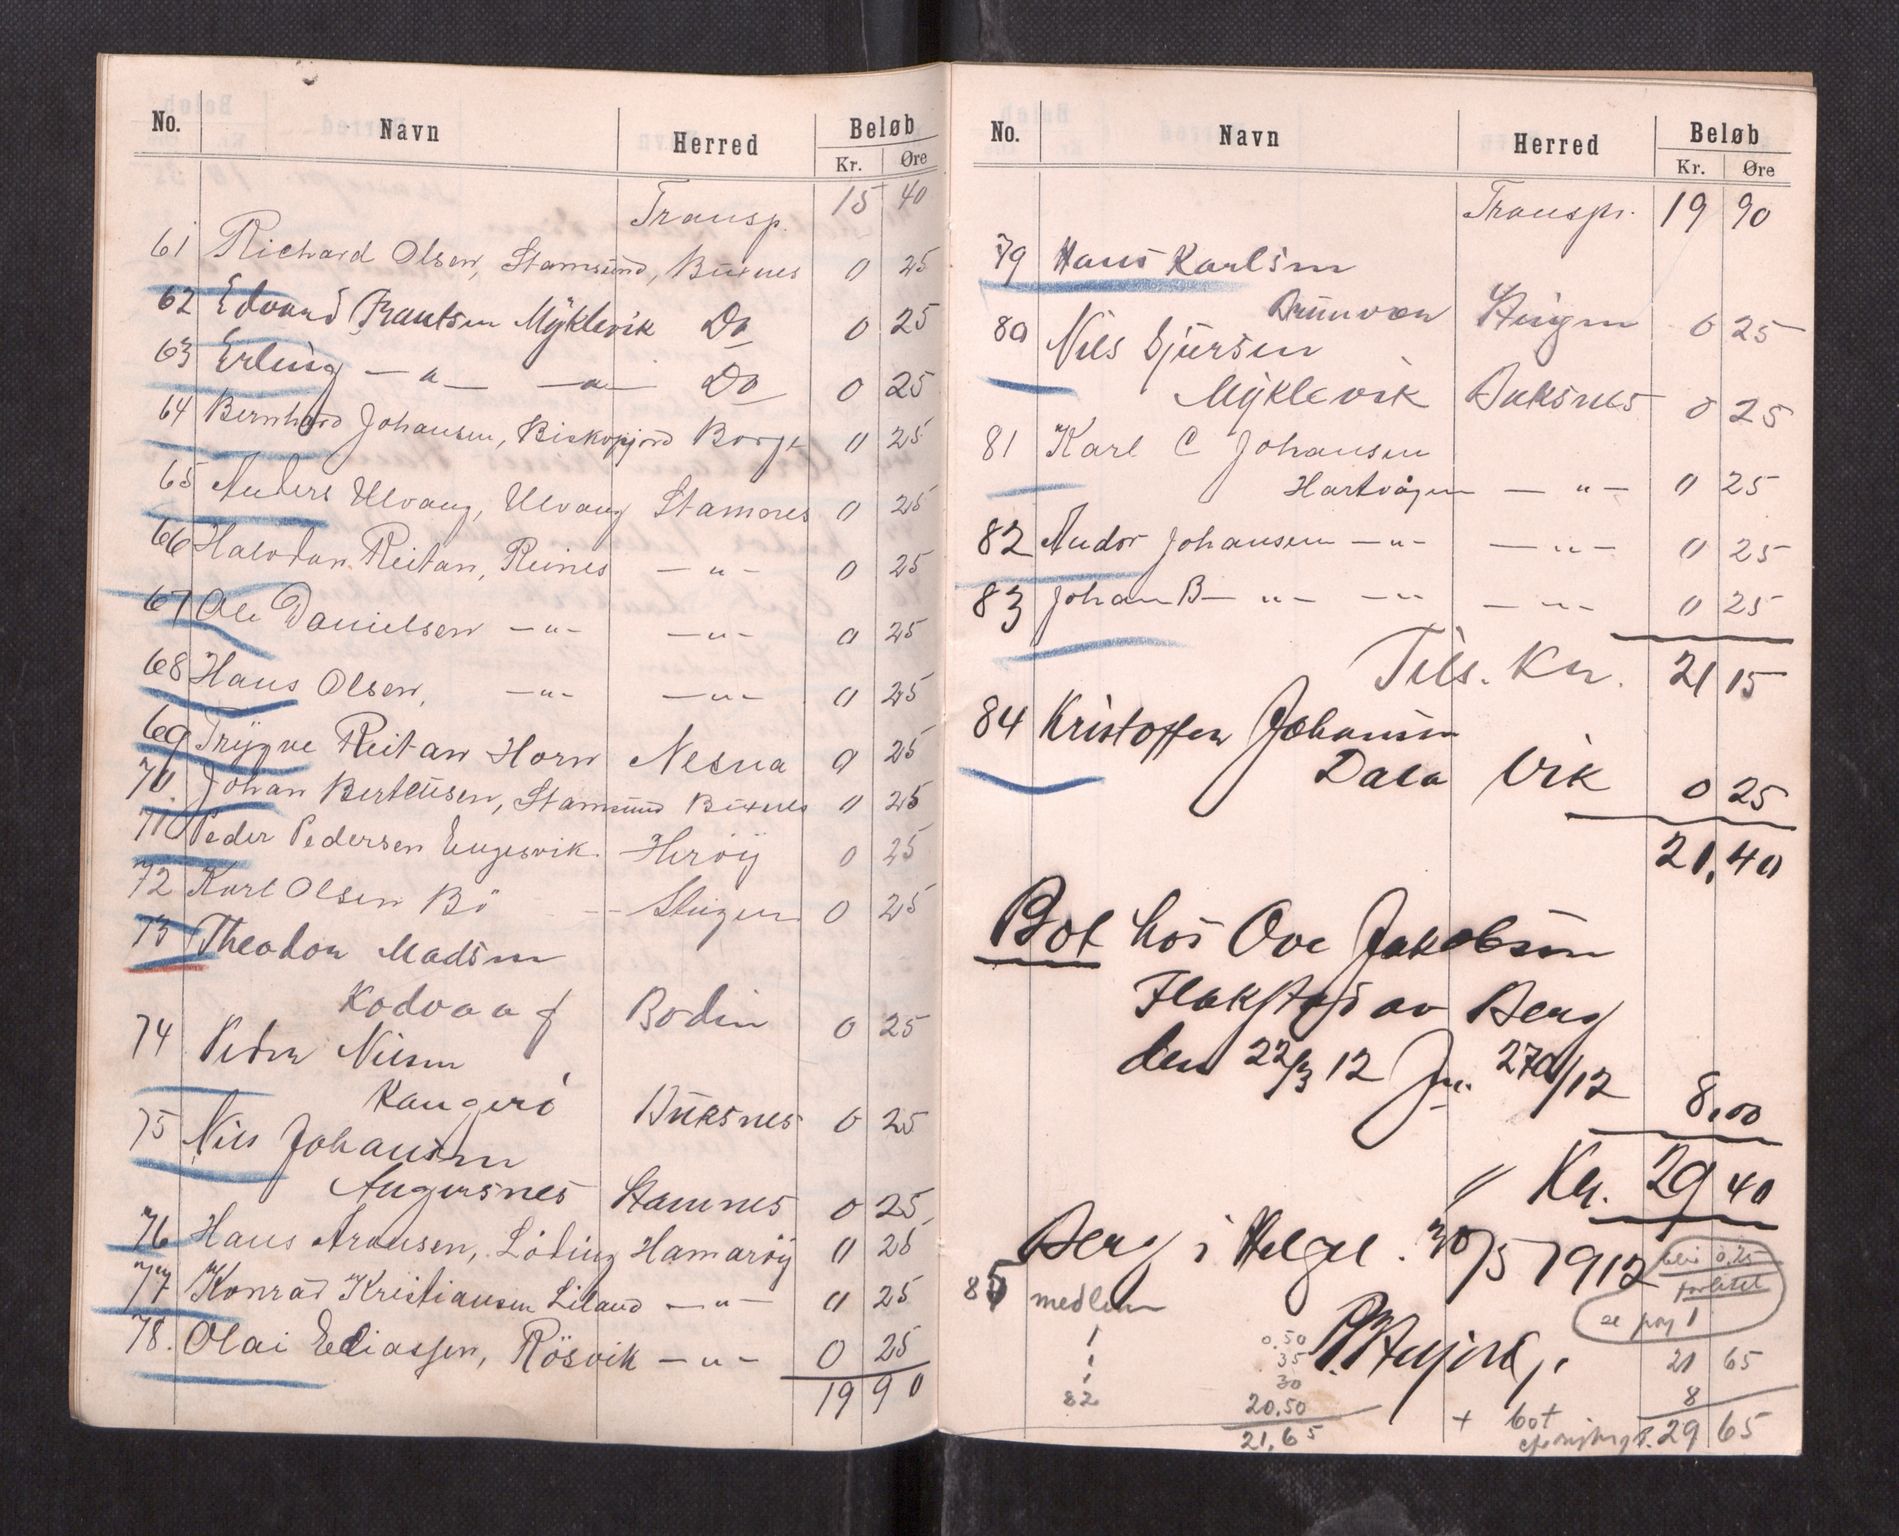 No. Navn Herred Beløb
Kr. Øre
Transp. 15 40
61 Richard Olsen, Stamsund, Buxnes 0 25
62 Edvard Frantsen Myklevik Do 0 25
63 Erling —"— —"— Do 0 25
64 Bernhard Johansen, Biskopjord Borge 0 25
65 Anders Ulvang, Ulvang Stamnes 0 25
66 Halvdan Reitan, Reines —"— 0 25
67 Ole Danielsen —"— —"— 0 25
68 Hans Olsen, —"— —"— 0 25
69 Trygve Reitan Horn Nesna 0 25
70. Johan Berteusen, Stamsund Buxnes 0 25
71. Peder Pedersen Engesvik. Herøy 0 25
72 Karl Olsen Bö — Steigen 0 25
73 Theodor Madsen
Kodvaag Bodin 0 25
74 Peder Nilsen
Kangerö Buksnes 0 25
75 Nils Johansen
Angersnes Stamnes 0 25
76 Hans Aronsen, Löding Hamarøy 0 25
77 Konrad Kristiansen Leland —"— 0 25
78. Olai Eliassen, Rösvik —"— 0 25
19 90
No. Navn Herred Beløb
Kr. Øre
Transp. 19 90
79 Hans Karlsen
Brunvær Steigen 0 25
80 Nils Sjursen
Myklevik Buksnes 0 25
81 Karl C Johansen
Hartvågen —"— 0 25
82 Andor Johansen —"— —"— 0 25
83 Johan B— "— —"— —"— 0 25
Tils. Kr. 21 15
84 Kristoffer Johansen
Dala Vik 0 25
21,40
Bot hos Ove Jakobsen
Flakstad av Berg
den 22/3 12 Jn. 270/12
8,00
" Kr. 29 40
Berg i Helgel. 30/5 1912
blir 0.25
forlitet
se pag 1
85 medlem
1 0.50
1 35
1 30
82 20.50
21,65
21 65
8
+ bot 29 65